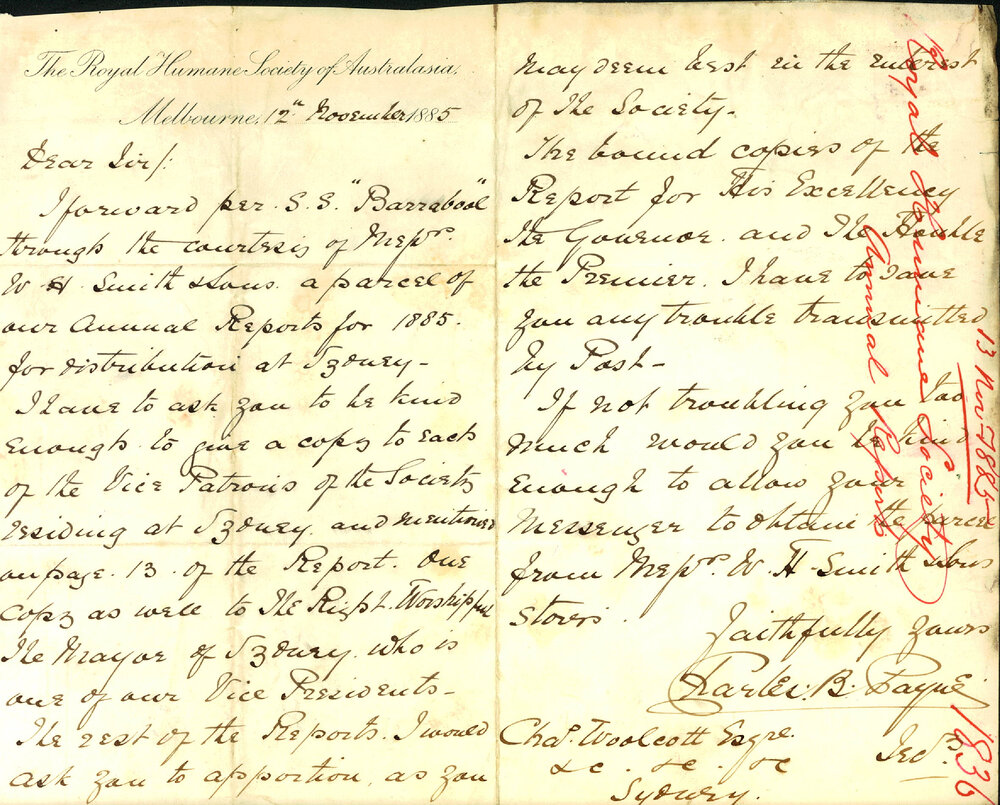 The Royal Humane Society of Australasia,
Melbourne, 12th November 1885
Dear Sir/:
I forward per. S.S. "Barrabool"
through the courtesy of Messrs.
W H. Smith & Sons. a parcel of
our Annual Reports for 1885.
for distribution at Sydney-
I have to ask you to be kind
enough to give a copy to each
of the Vice Patrons of the Society
residing at Sydney. and mentioned
on page. 13. of the Report. One
copy as well to The Right. Worshipful
The Mayor of Sydney. who is
one of our Vice Presidents-
The rest of the Reports. I would
ask you to apportion, as you
may deem best in the interest
of the Society-
The bound copies of the
Report for His Excellency
the Govenor. and The Honble
the Premier. I have to save
you any trouble transmitted
by Post-
If not troubling you too
much would you be kind
enough to allow your
Messenger to obtain the parcel
from Messrs. W. H. Smith & Sons
Stores.
Faithfully yours
Charles. B. Payne
Secy.
Chas. Woolcott Esqre.
&c. &c. &c
Sydney.
Royal Humane Society
Annual Reports
13 Nov 1885
1836